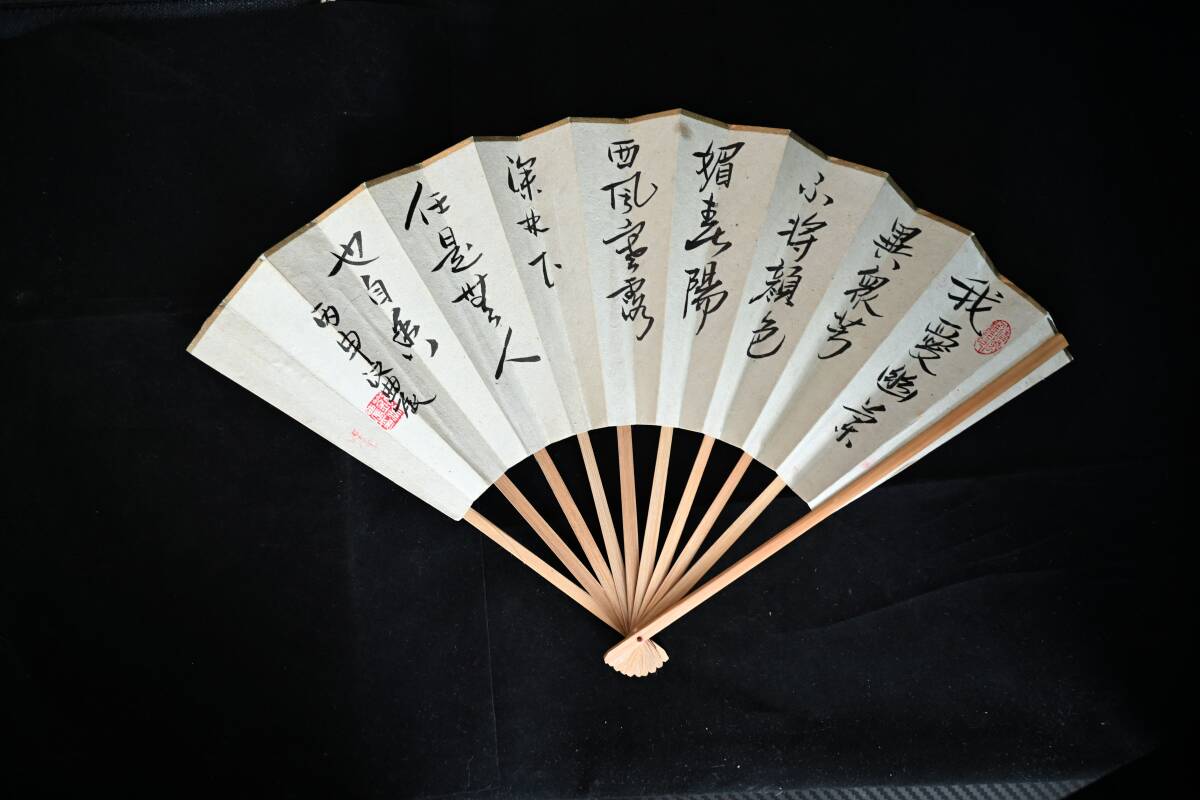 我愛幽蘭
異眾芳
不將顏色
媚春陽
西風寒露
深林下
任是無人
也自香
丙申